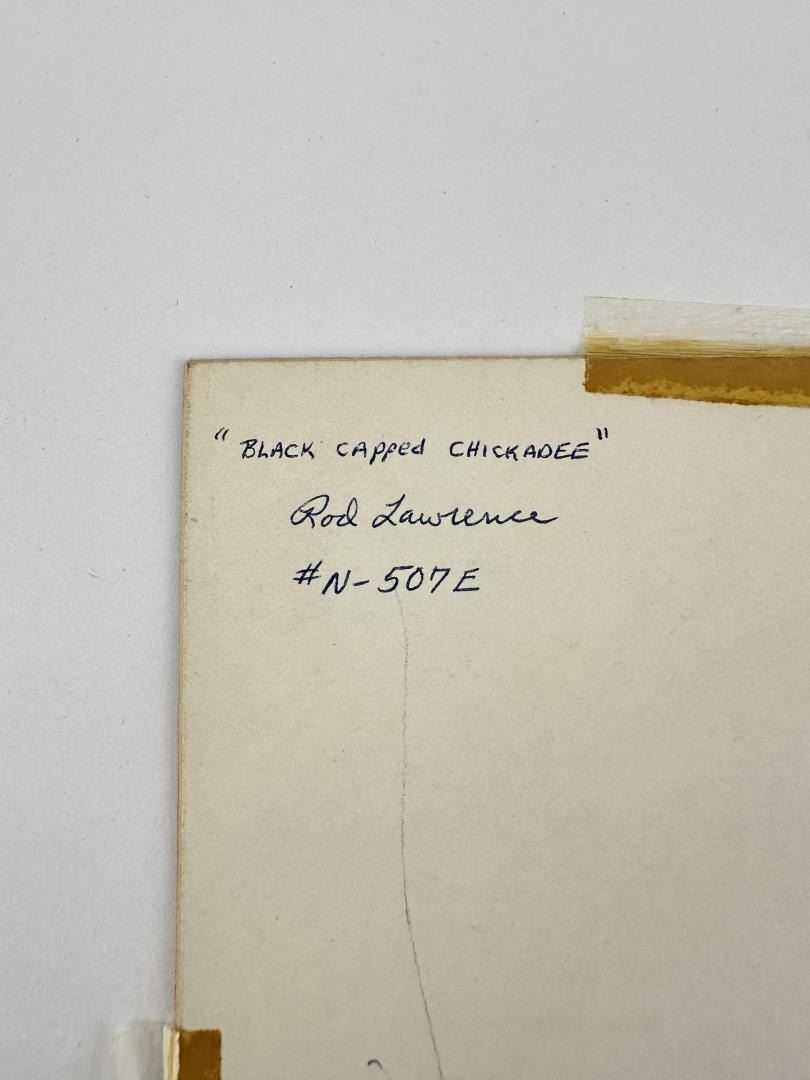 "BLACK CAPPed CHICKADEE"
Rod Lawrence
#N-507E